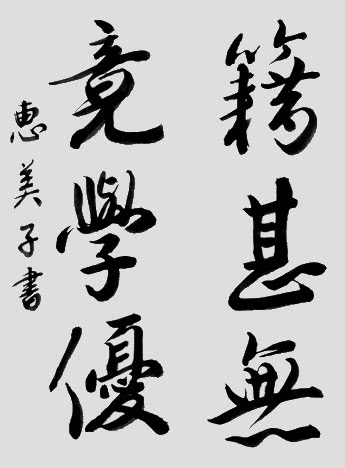 籍甚無
竟學優
恵美子書